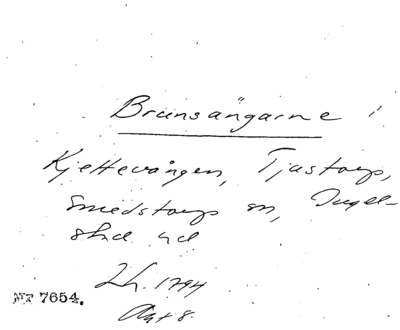 Brunsängarne i
Kjettevången, Tjustorp,
Smedstorp sn, Ingel-
stad hd
Lh. 1794
Akt 8.
MT 7654.